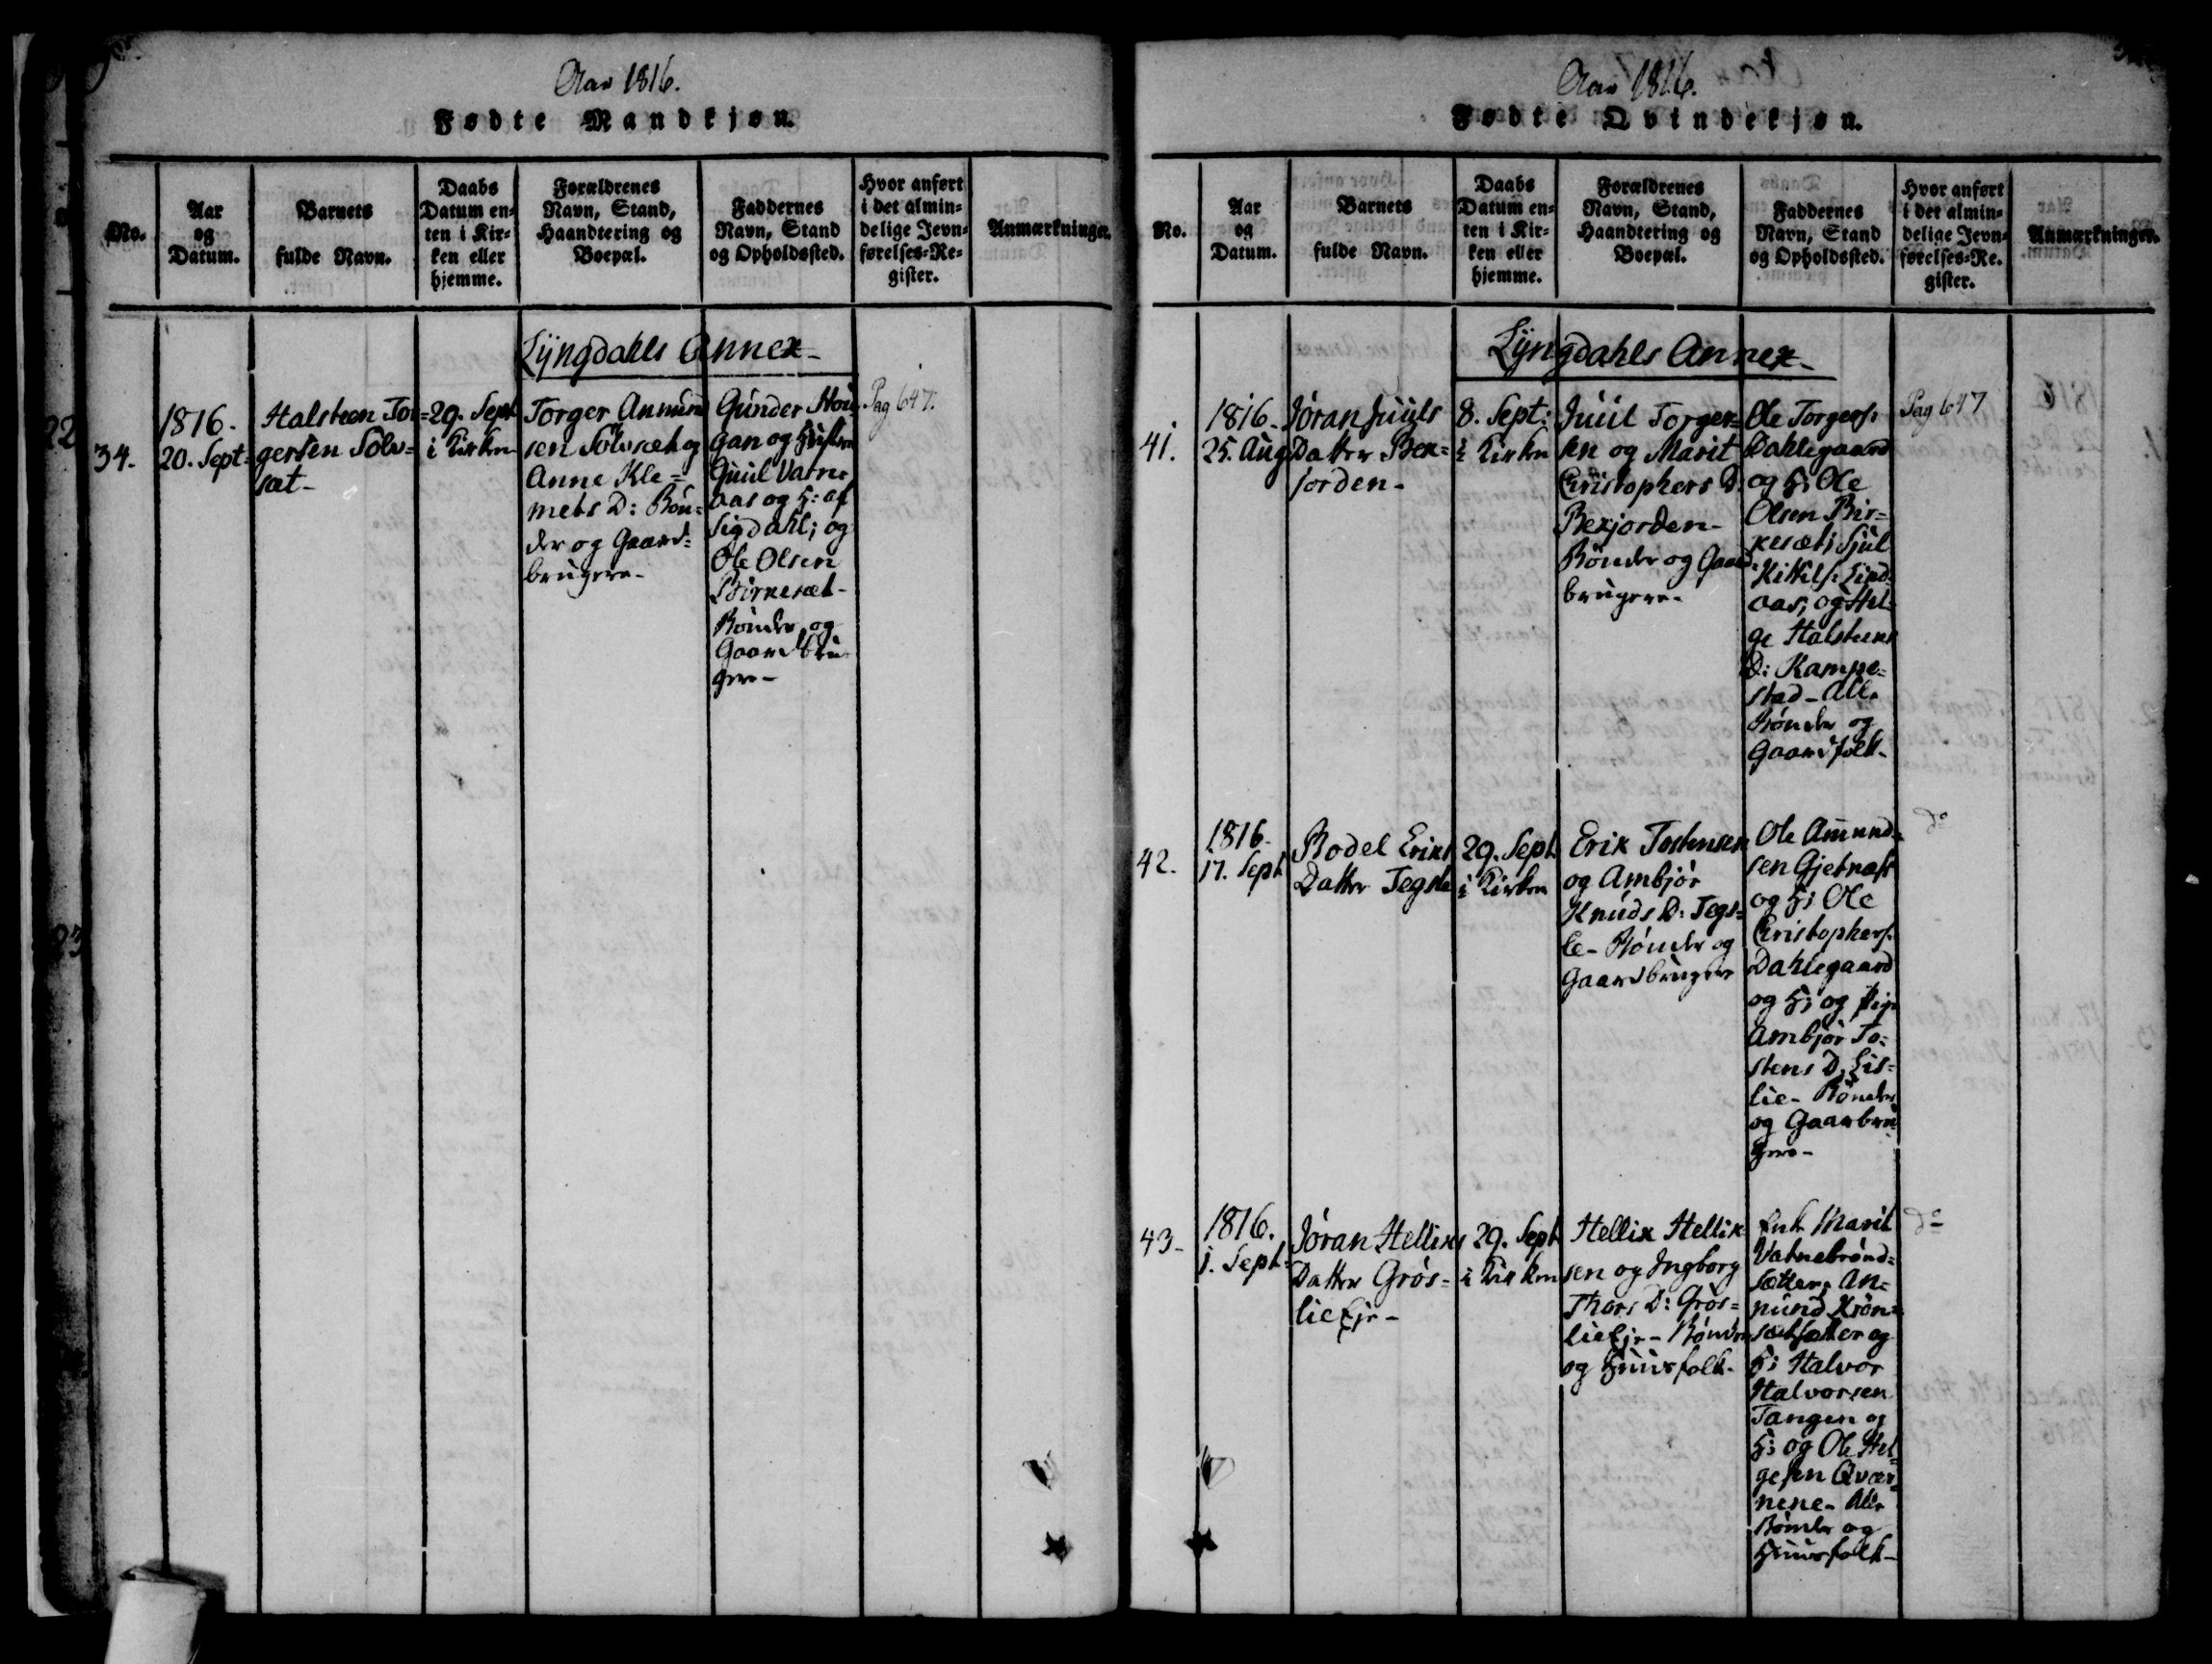 Aar 1816.
Fødte Mandkjøn.
No.
Aar
og
Datum.
Barnets
fulde Navn.
Daabs
Datum en=
ten i Kir=
ken eller
hjemme.
Forældrenes
Navn, Stand,
Haandtering og
Boepæl.
Faddernes
Navn, Stand
og Opholdssted.
Hvor anført
i det almin=
delige Jevn=
førelses=Re=
gister.
Anmærkninger.
Lyngdahls Annex-
22
34.
1816.
20. Sept:
Halsteen Tor=
gersen Sølv=
sæt-
29. Sept
i Kirken
Torger Anmund
sen Sølvsæt og
Anne Kle=
mets D: Bøn=
der og Gaard=
brugere-
Gunder Hou
gan og Hustru
Guul Vatne
aas og H: af
Sigdahl; og
Ole Olsen
Birkesæt-
Bønder og
Gaardbru
gere-
Pag 647.
23
Aar 1816.
Fødte Qvindekjøn.
No.
Aar
og
Datum.
Barnets
fulde Navn.
Daabs
Datum en=
ten i Kir=
ken eller
hjemme.
Forældrenes
Navn, Stand,
Haandtering og
Boepæl.
Faddernes
Navn, Stand
og Opholdssted.
Hvor anført
i det almin=
delige Jevn=
førelses=Re=
gister.
Anmærkninger.
Lyngdahls Annex-
41.
1816.
25. Aug
Jøran Juuls
Datter Bex=
jorden-
8. Sept:
i Kirken
Juul Torger=
sen og Marit
Christophers D.
Bexjorden-
Bønder og Gaard=
brugere-
Ole Torgers:
Dahlegaard
og H; Ole
Olsen Bir=
kesæt; Sjul
Kittils: Lind
aas; og Hel=
ge Halsteens
D: Kampe=
stad- Alle
Bønder og
Gaardfolk-
Pag 647
42.
1816.
17. Sept
Bodel Eriks
Datter Tegsle
29. Sept
i Kirken
Erik Tostensen
og Ambjør
Knuds D: Tegs=
le- Bønder og
Gaardbrugere
Ole Amund=
sen Gjetnæss
og H; Ole
Christophers.
Dahlegaard
og H; og Pige
Ambjør To=
stens D. Lis=
lie- Bønder
og Gaarbru
gere-
do
43-
1816.
1. Sept:
Jøran Hellixs
Datter Grøs=
lieEje-
29. Sept
i Kirken
Hellix Hellix
sen og Ingborg
Thors D: Grøs=
lieEje- Bønder
og Huusfolk-
Enk. Marit
Vatnebrønd=
sætter; An=
mund
og
H; Halvor
Halvorsen
Tangen og
H; og Ole Hel
gesen Qvær=
nene- Alle
Bønder og
Huusfolk-
do